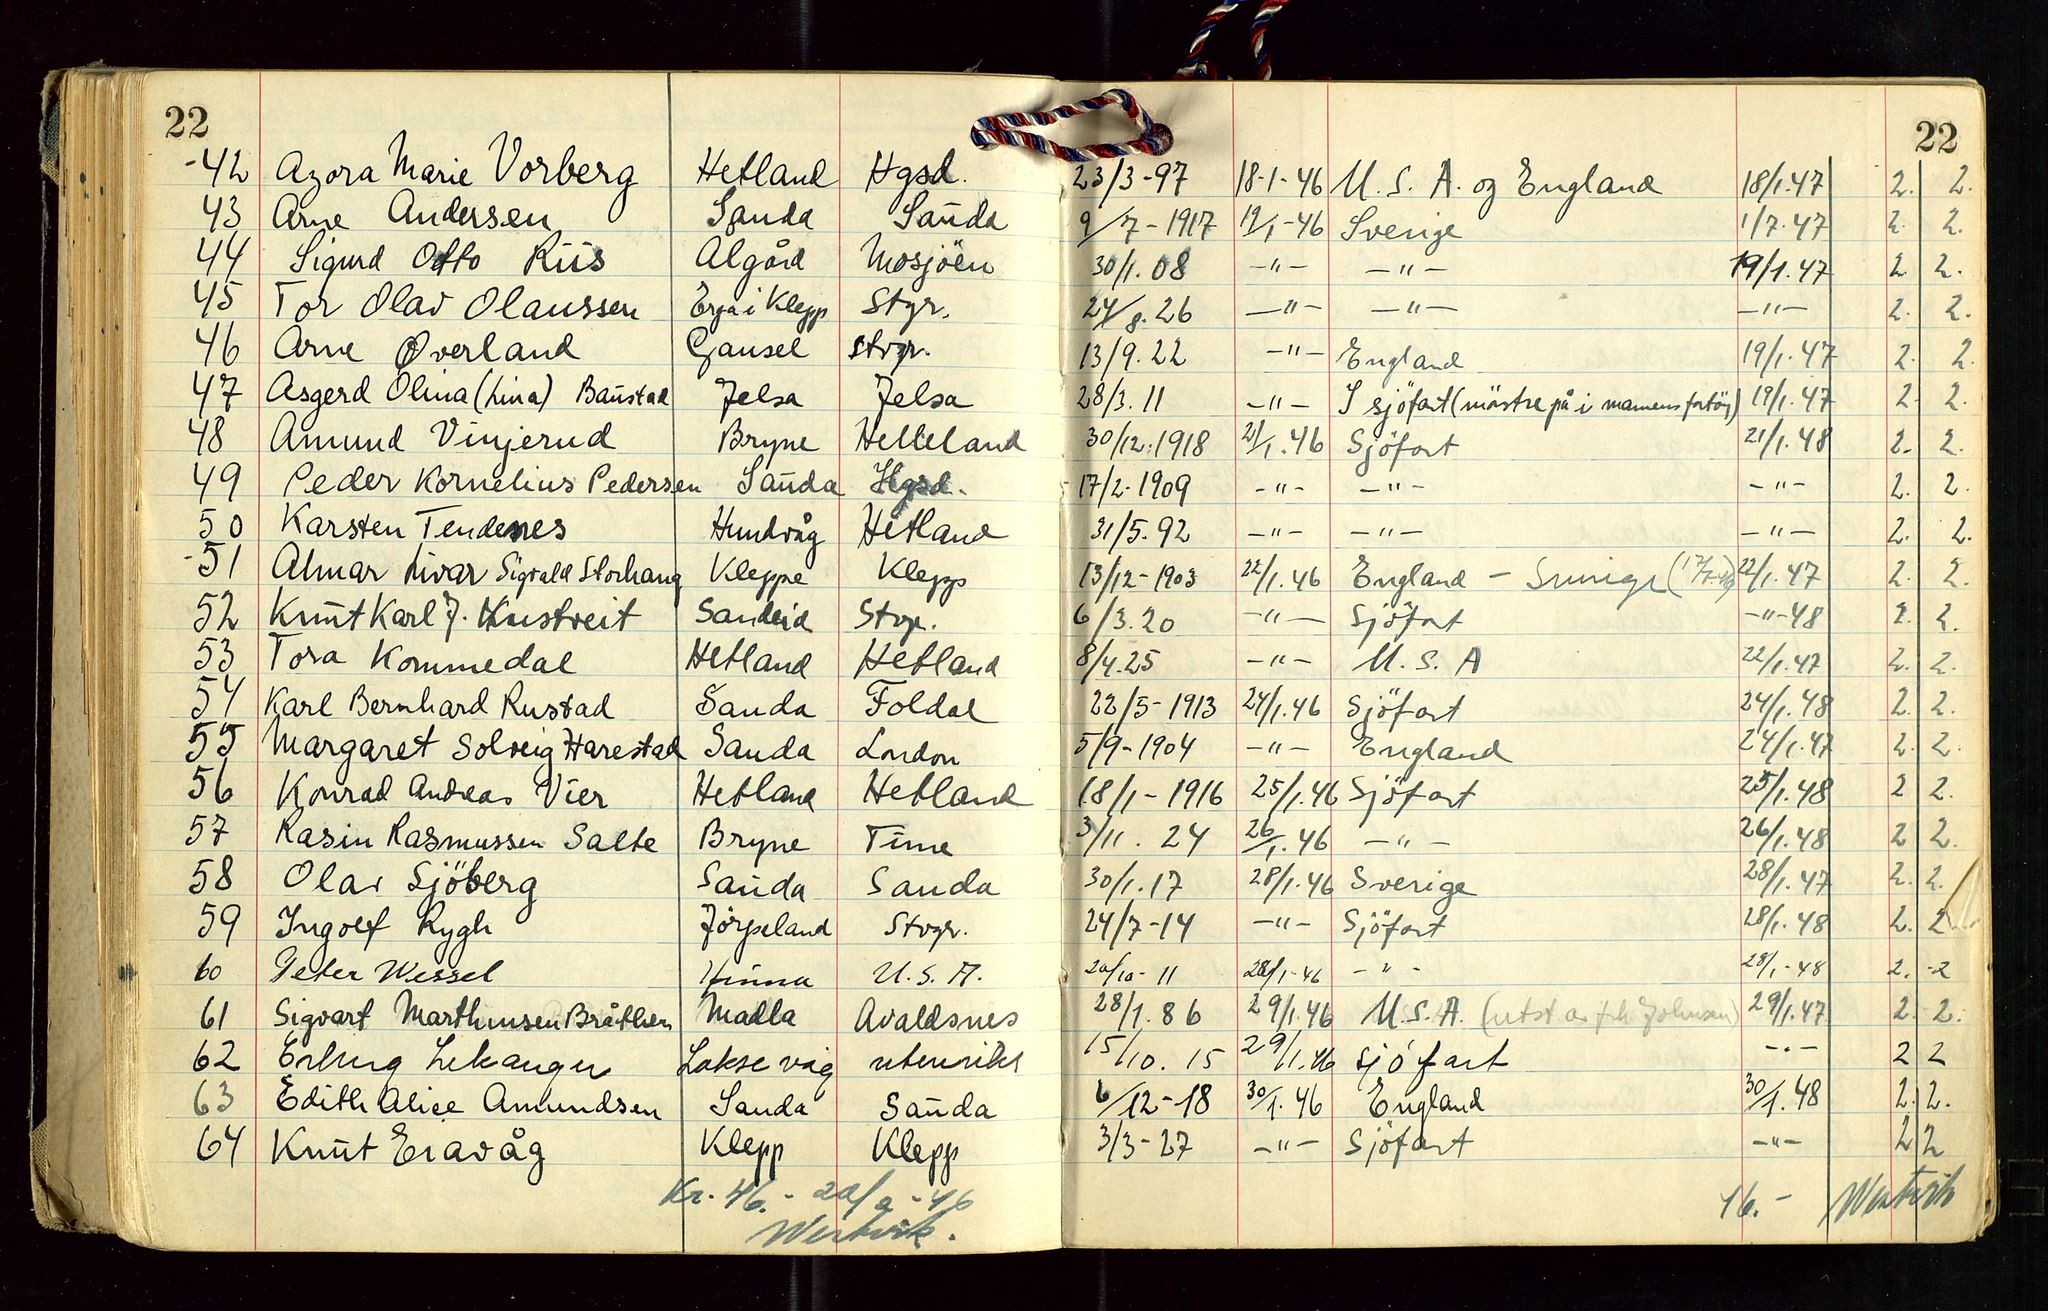 22 22
42 Azora Marie Vorberg Hetland Hgsd. 23/3-97 18-1-46 U.S.A. og England 18/1.47 2. 2.
43 Arne Andersen Sauda Sauda 9/7-1917 19/1-46 Sverige 1/7.47 2. 2.
44 Sigurd Otto Riis Algård Mosjöen 30/1.08 -"- -"- 19/1.47 2 2.
45 Tor Olav Olaussen i Klepp Stgr. 24/8.26 -"- -"- -"- 2. 2.
46 Arne Øverland Gausel Stvgr. 13/9.22 -"- England 19/1.47 2. 2.
47 Asgerd Olina (Lina) Baustad Jelsa Jelsa 28/3.11 -"- I sjöfart (mönstre på i mannens fartöy) 19/1.47 2. 2.
48 Amund Vinjerud Bryne Helleland 30/12.1918 21/1.46 Sjöfart 21/1.48 2. 2.
49 Peder Kornelius Pedersen Sauda Hgsd. 17/2-1909 -"- -"- -"- 2. 2.
50 Karsten Tendenes Hundvåg Hetland 31/5.92 -"- -"- -"- 2. 2.
51 Almar Livar Sigvald Storhaug Kleppe Klepp 13/12-1903 22/1.46 England - 22/1.47 2. 2.
52 Knut Karl J. Sandeid Stvgr. 6/3.20 -"- Sjöfart -"-48 2. 2.
53 Tora Kommedal Hetland Hetland 8/4.25 -"- U.S.A 22/1.47 2. 2.
54 Karl Bernhard Rustad Sauda Foldal 22/5-1913 24/1.46 Sjöfart 24/1.48 2. 2.
55 Margaret Solveig Harestad Sauda London 5/9-1904 -"- England 24/1.47 2. 2.
56 Konrad Andreas Vier Hetland Hetland 18/1-1916 25/1.46 Sjöfart 25/1.48 2 2.
57 Rasin Rasmussen Salte Bryne Time 3/11.24 26/1.46 -"- 26/1.48 2 2.
58 Olav Sjöberg Sauda Sauda 30/1.17 28/1.46 Sverige 28/1.47 2. 2.
59 Ingolf Rygh Jörpeland Stvgr. 24/7-14 -"- Sjöfart 28/1.48 2. 2
60 Peter Wessel Hinna U.S.A. 20/10-11 28/1-46 -"- 28/1-48 2. -2
61 Sigvart Marthinsen Bråthen Madla Avaldsnes 28/1.86 29/1.46 U.S.A. (utst. av frk Johnsen) 29/1.47 2. 2.
62 Erling Lekanger Laksevåg utenriks 15/10.15 29/1.46 Sjöfart -"- 2 2
63 Edith Alice Amundsen Sauda Sauda 6/12-18 30/1.46 England 30/1.48 2. 2.
64 Knut Eiavåg Klepp Klepp 3/3-27 -"- Sjöfart -"- 2 2
Kr. 46.- 20/2-46 46.- Westvik
Westvik.